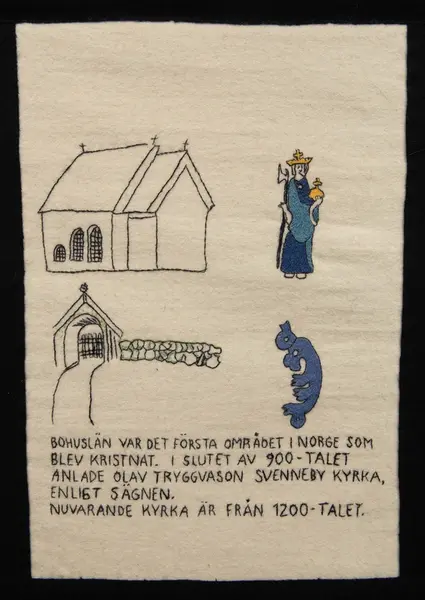 BOHUSLÄN VAR DET FÖRSTA OMRÅDET I NORGE SOM
BLEV KRISTNAT. I SLUTET AV 900-TALET
ANLADE OLAV TRYGGVASON SVENNEBY KYRKA,
ENLIGT SÄGNEN.
NUVARANDE KYRKA ÄR FRÅN 1200-TALET.